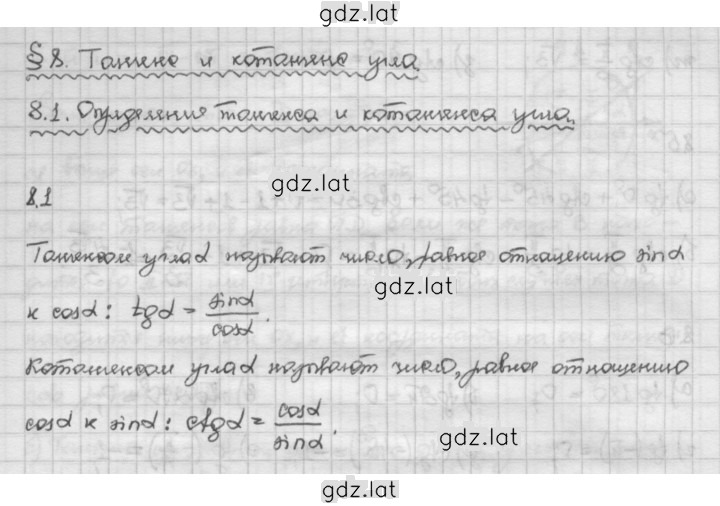 gdz.lat
§ 8. Тангенс и котангенс угла
8.1. Определения тангенса и котангенса угла.
gdz.lat
8.1
Тангенсом угла α называют число, равное отношению sinα
gdz.lat
к cosα: tgα = sinα/cosα.
Котангенсом угла α называют число, равное отношению
cosα к sinα: ctgα = cosα/sinα.
gdz.lat
gdz.lat